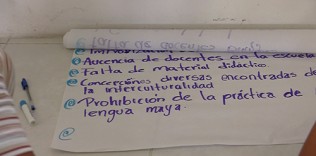 Aucencia de docentes en la escuela
Falta de material didactico.
Concepciones diversas encontradas de
la interculturalidad
Prohibición de la práctica de
lengua maya.